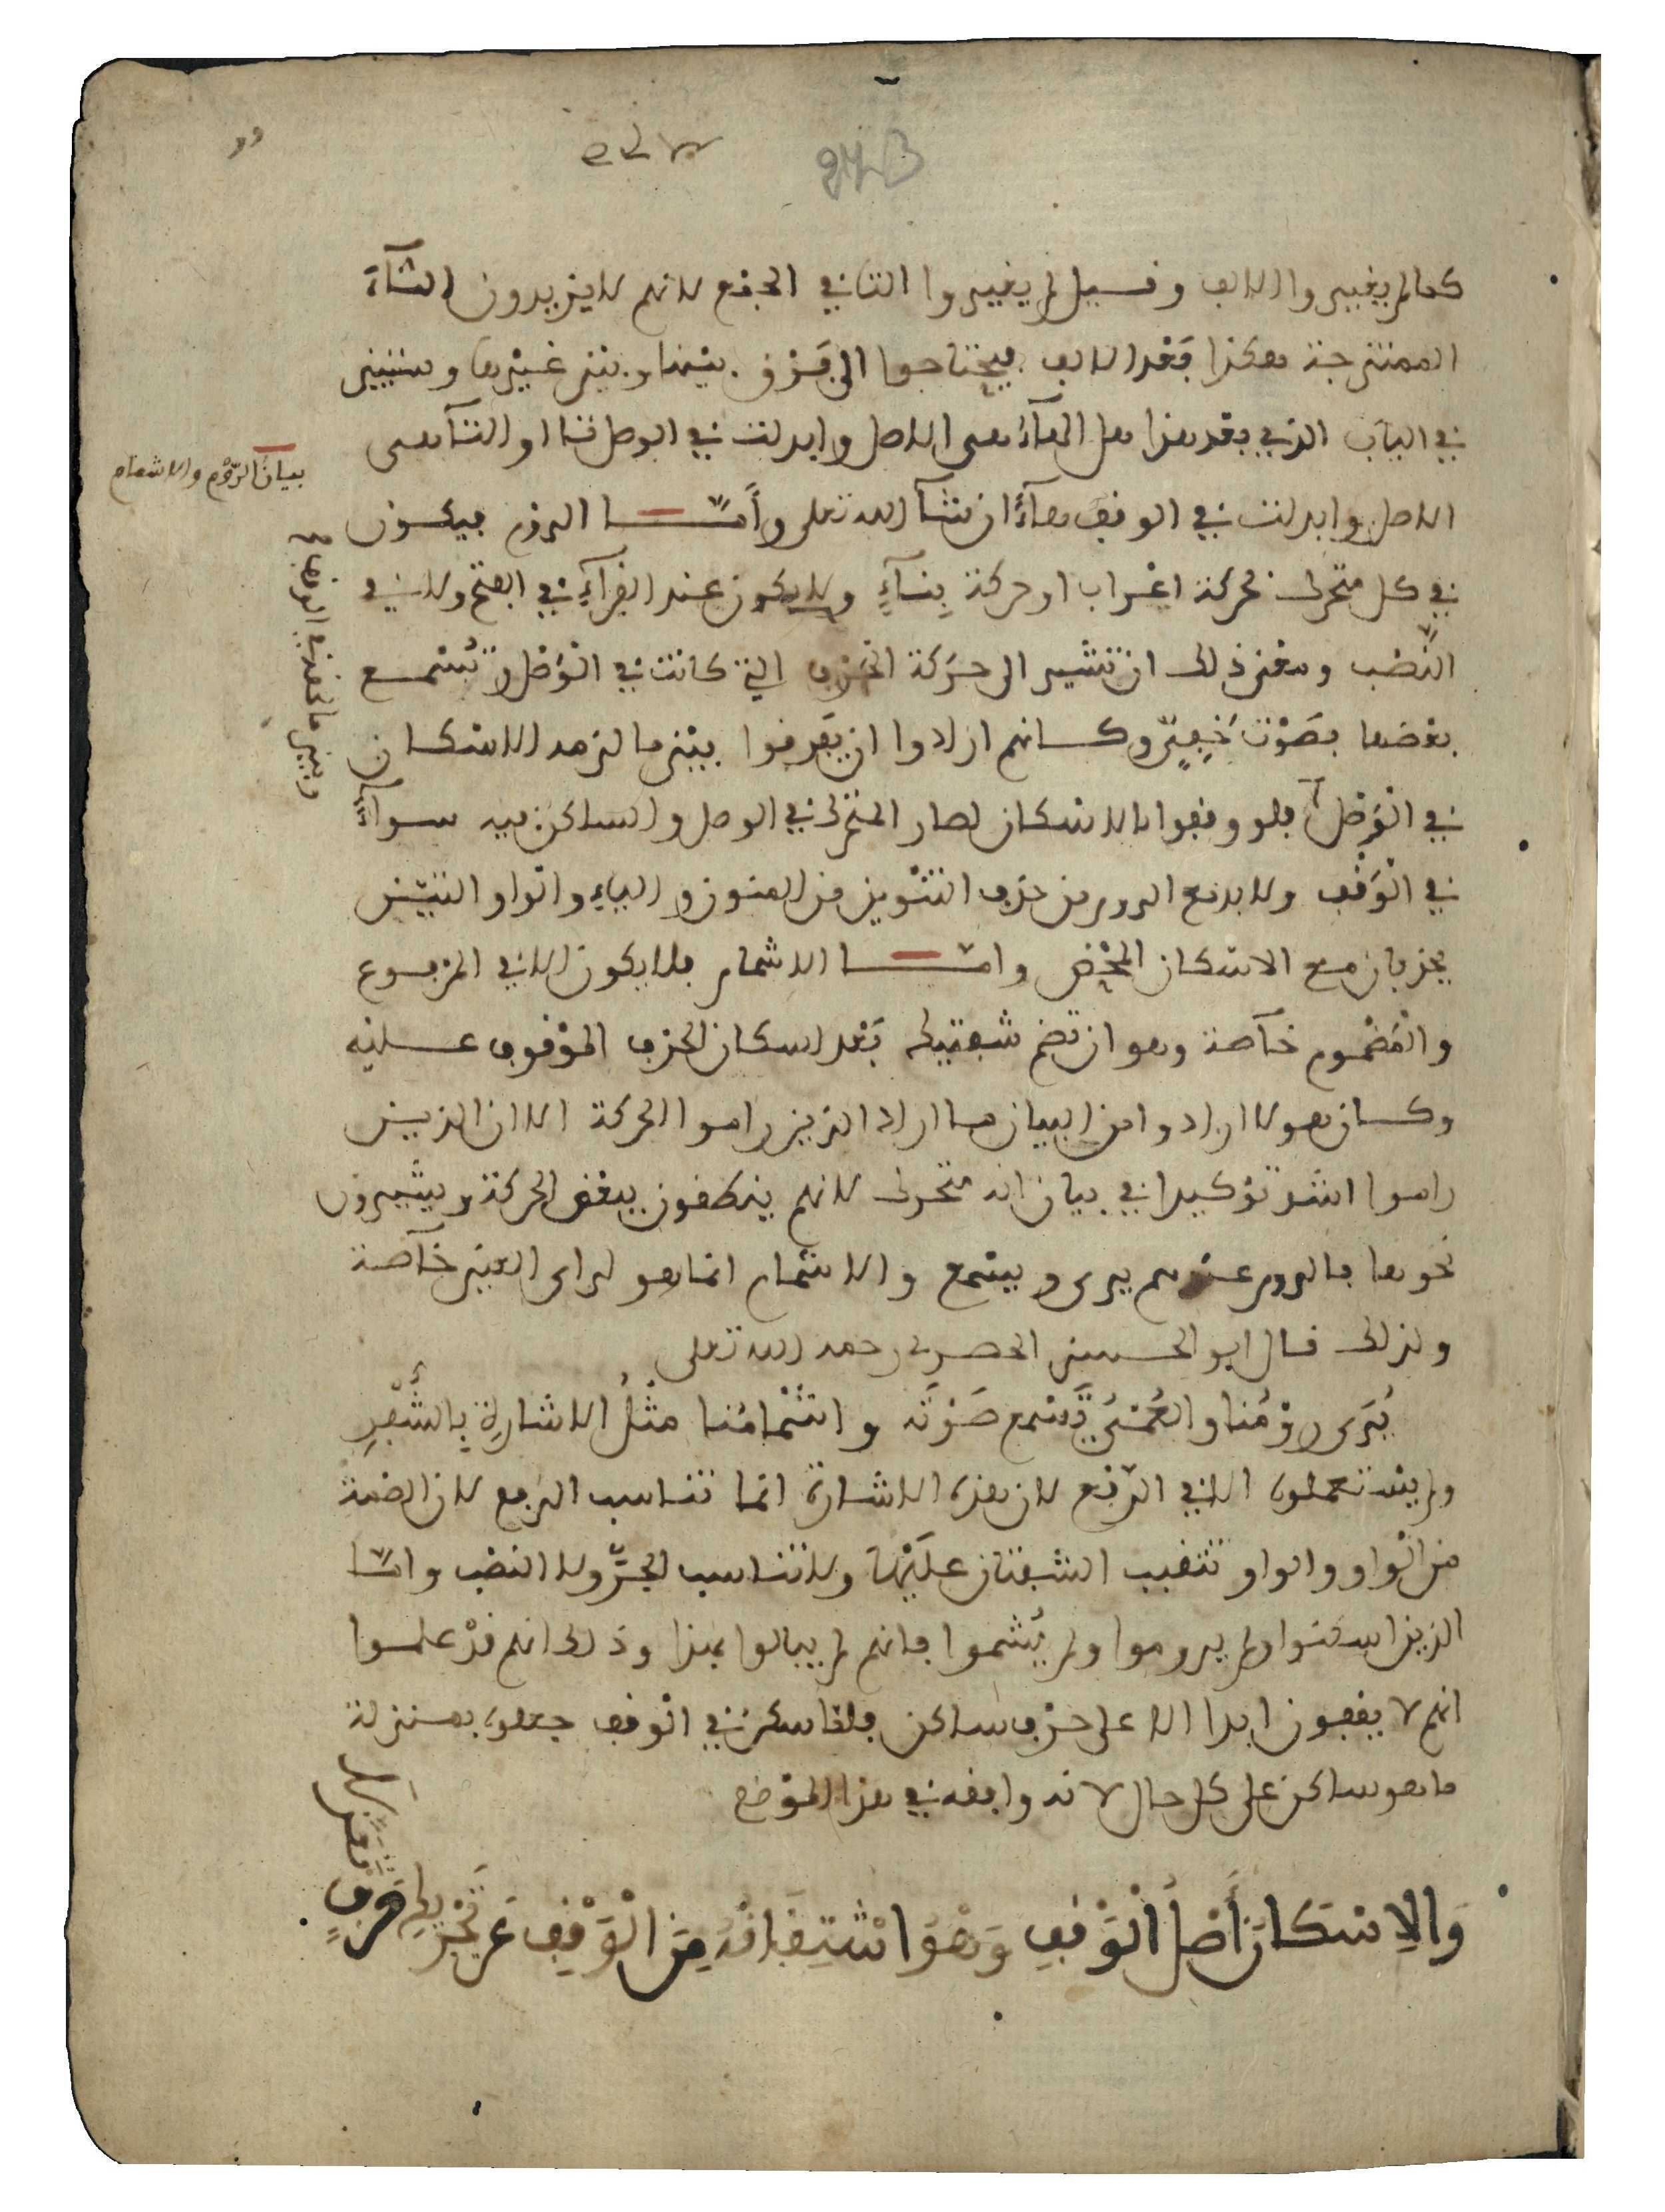 كما لم يغيروا الالف وقيل لم يغيروا التا في الجمع لانهم لا يزيدون التآء
الممتزجة هكذا بَعْد الالف فيحتاجوا الى فَرْق بينها وبين غيْرها وستبين
في البَاب الذي بعد هذا هل الهآء هي الاصل وابدلت في الوصل تا او التآ هي
الاصل وابدلت في الوقف هآءً ان شآ الله تعلى وأمّا الروم فيكون
في كل متحرك بحركة اعْراب او حركة بِنآءٍ ولا يكون عند القرآءِ في الفتح ولا في
النَّصْب ومعنى ذلك ان تشير الى حرَكة الحَرْف التي كانت في الوَصْل وتُسْمع
بعْضها بصَوْت خَفِيٍّ وكانهم ارادوا ان يَفرقوا بيْن ما لزمه الاسْكان
في الوَصْل فلو وقفوا بالاسْكان لصار المتحرك في الوصل والساكن فيه سوآءً
في الوَقْف ولا بد مع الروم من حذف التنْوين من المنون والياءِ والواو التيْن
يحذفان مع الاسْكان المحْض وامّا الاشمام فلا يكون الا في المرفوع
والمَضْموم خآصة وهو ان تضم شفتيك بَعْد اسكان الحرف الموْقوف عليْه
وكان هولا ارادوا من البيان ما اراد الذين راموا الحركة الا ان الذين
راموا اشد توْكيدا في بيان انه متحرك لانهم ينطقون ببعْض الحركة ويشيرون
نحوها فالروم عندهم يرى ويسْمع والاشمام انما هو لراى العيْن خآصة
ولذلك قال ابو الحسن الحصرى رحمه الله تعلى
يُرَى رَوْمُنا والعُمْىُ تَسْمع صَوْتَه واشْمَامُنا مثْلُ الاشارةِ بِالشُّفْرِ
ولم يسْتعملوه الا في الرّفع لان هذه الاشارة انما تناسب الرفع لان الضمة
من الوَاو والواو تنقبب الشفتان عليْهَا ولا تناسب الجرَّ ولا النصْب وامّا
الذين اسكنوا ولم يروموا ولم يُشموا فانهم لم يبالوا بهذا وذلك انهم قدْ علموا
انهم لا يقفون ابدا الا على حرْف ساكن فلما سكن في الوْقف جعلوه بمنزلة
ما هو ساكن على كل حال لانه وافقه في هذا الموْضع
وَالِاسْكَانُ أَصْلُ الْوَقْفِ وَهْوَ اشْتِقَاقُهُ مِنَ الْوَقْفِ عَن تَحْرِيكِ حَرْفٍ
تَعَزَّلَا
بيانُ الرّوْم والاشمام
وبين ما لحقه في الوقف